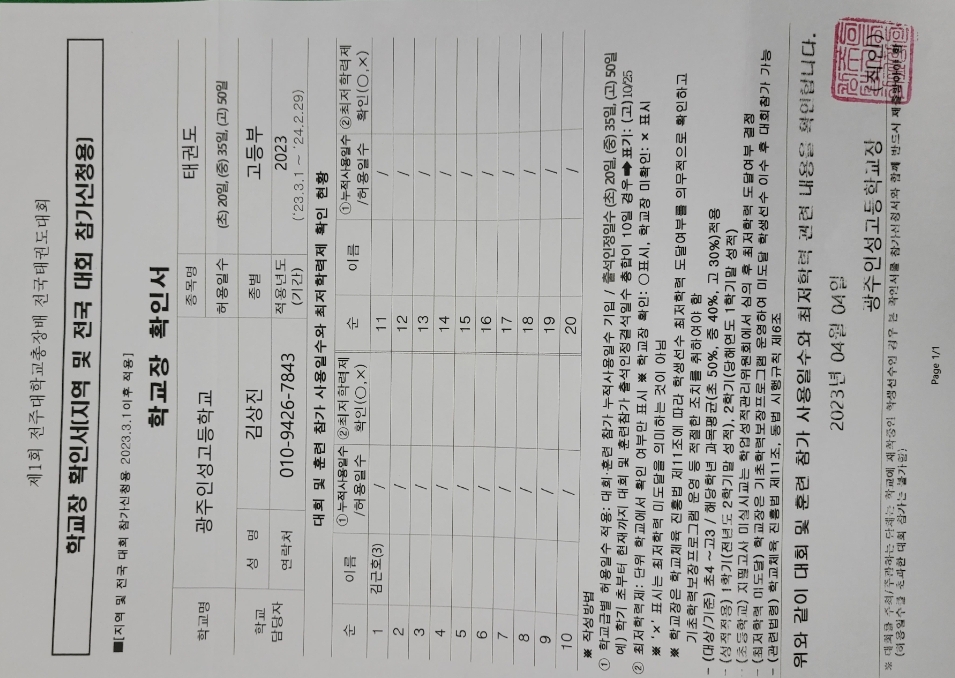 제1회 전주대학교총장배 전국태권도대회
학교장 확인서(지역 및 전국 대회 참가신청용)
■[지역 및 전국 대회 참가신청용 2023.3.1이후 적용]
학교장 확인서
학교명 광주인성고등학교 종목명 태권도
허용일수 (초) 20일, (중) 35일, (고) 50일
학교 담당자 성 명 김상진 종별 고등부
연락처 010-9426-7843 적용년도 (기간) 2023 ('23.3.1 ~ '24.2.29)
대회 및 훈련 참가 사용일수와 최저학력제 확인 현황
순 이름 ①누적사용일수 /허용일수 ②최저학력제 확인(○,×) 순 이름 ①누적사용일수 /허용일수 ②최저학력제 확인(○,×)
1 김근호(3) / 11 /
2 / 12 /
3 / 13 /
4 / 14 /
5 / 15 /
6 / 16 /
7 / 17 /
8 / 18 /
9 / 19 /
10 / 20 /
※ 작성방법
① 학교급별 허용일수 적용: 대회·훈련 참가 누적사용일수 기입 / 출석인정일수 (초) 20일, (중) 35일, (고) 50일
예) 학기 초부터 현재까지 대회 및 훈련참가 출석인정결석일수 총합이 10일 경우 ➡ 표기: (고) 10/25
② 최저학력제: 단위 학교에서 확인 여부만 표시 ※ 학교장 확인: ○표시, 학교장 미확인: × 표시
※ '×' 표시는 최저학력 미도달을 의미하는 것이 아님
※ 학교장은 학교체육 진흥법 제11조에 따라 학생선수 최저학력 도달여부를 의무적으로 확인하고
기초학력보장프로그램 운영 등 적절한 조치를 취하여야 함
- (대상/기준) 초4 ~고3 / 해당학년 과목평균(초 50%, 중 40%, 고 30%)적용
- (성적적용) 1학기(전년도 2학기말 성적), 2학기(당해연도 1학기말 성적)
- (초등학교) 지필고사 미실시교는 학업성적관리위원회에서 심의 후 최저학력 도달여부 결정
- (최저학력 미도달) 학교장은 기초학력보장프로그램 운영하여 미도달 학생선수 이수 후 대회참가 가능
- (관련법령) 학교체육 진흥법 제11조, 동법 시행규칙 제6조
위와 같이 대회 및 훈련 참가 사용일수와 최저학력 관련 내용을 확인합니다.
2023년 04월 04일
광주인성고등학교장 (직인)
※ 대회를 주최/주관하는 단체는 학교에 재학중인 학생선수인 경우 본 확인서를 참가신청서와 함께 반드시 제출받아야 함
(허용일수를 초과한 대회 참가는 불가함)
Page 1/1